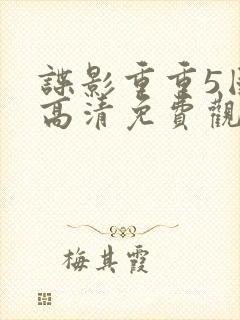 諜影重重5
高清免費觀
梅其霞